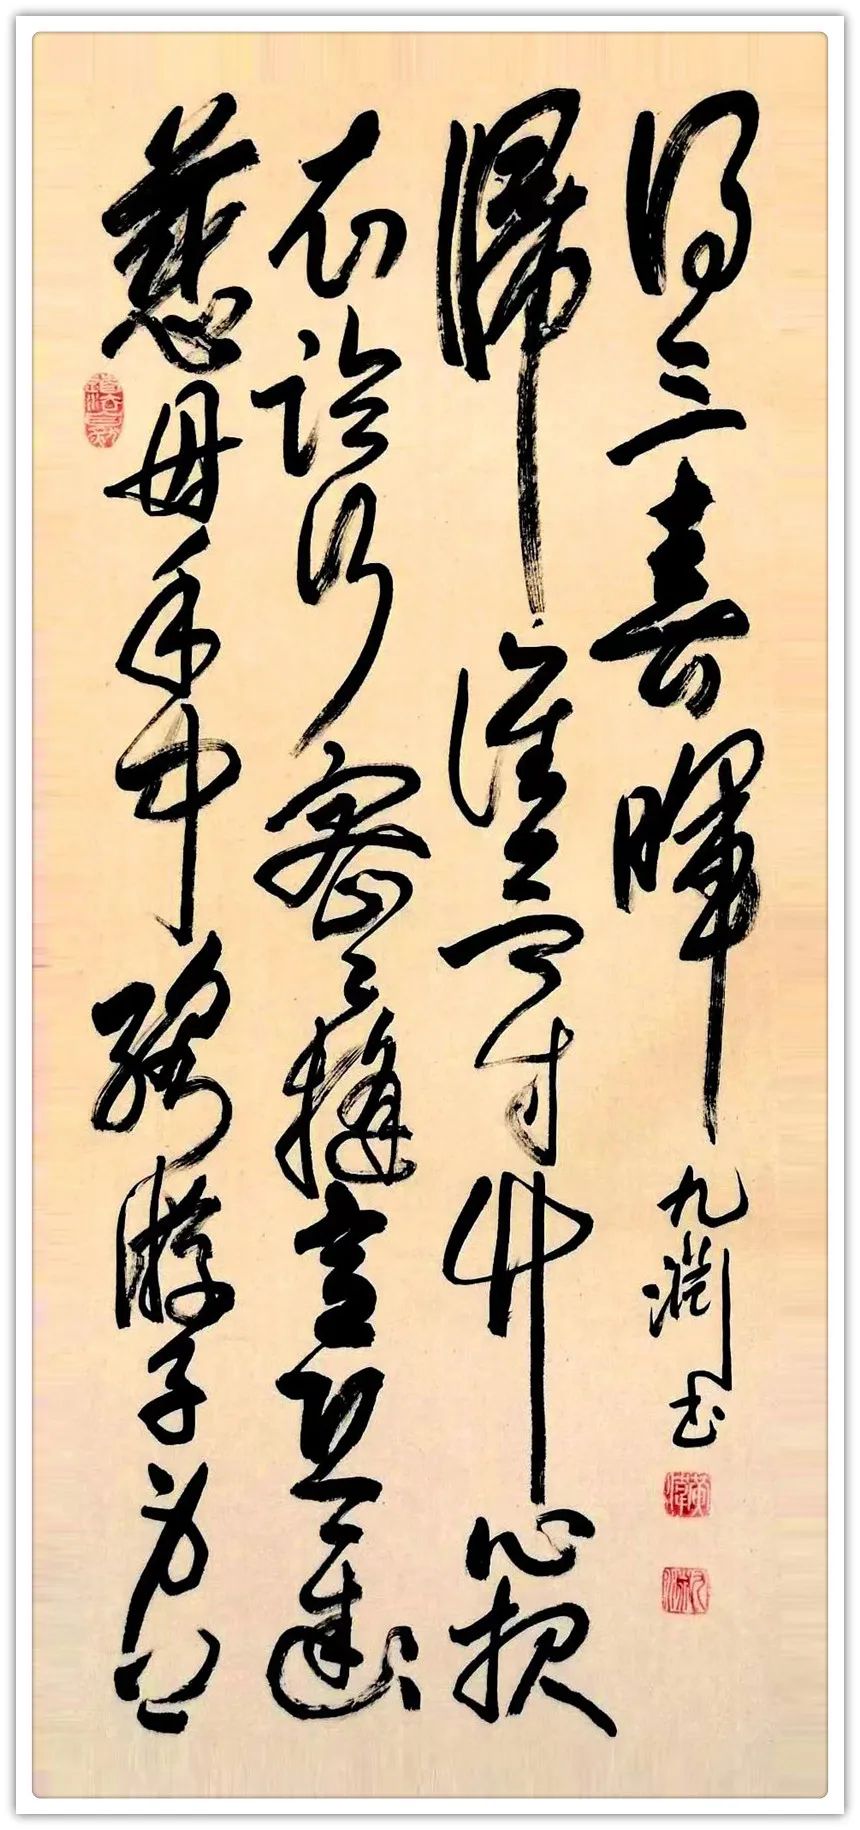 慈母手中線游子身上
衣臨行密密縫意恐遲遲
歸誰言寸草心報
得三春暉
九淵書